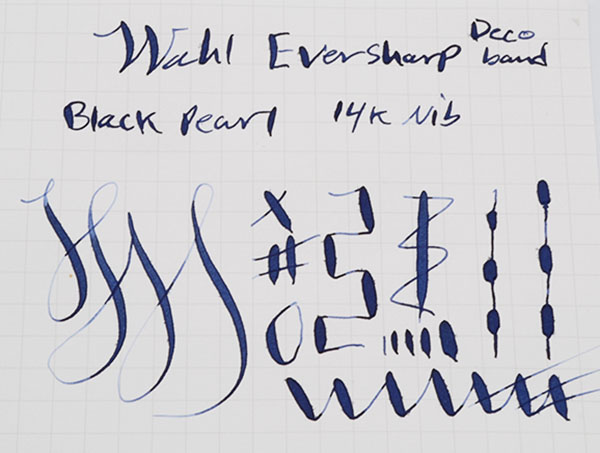 Wahl Eversharp Deco band
Black Pearl 14K Nib